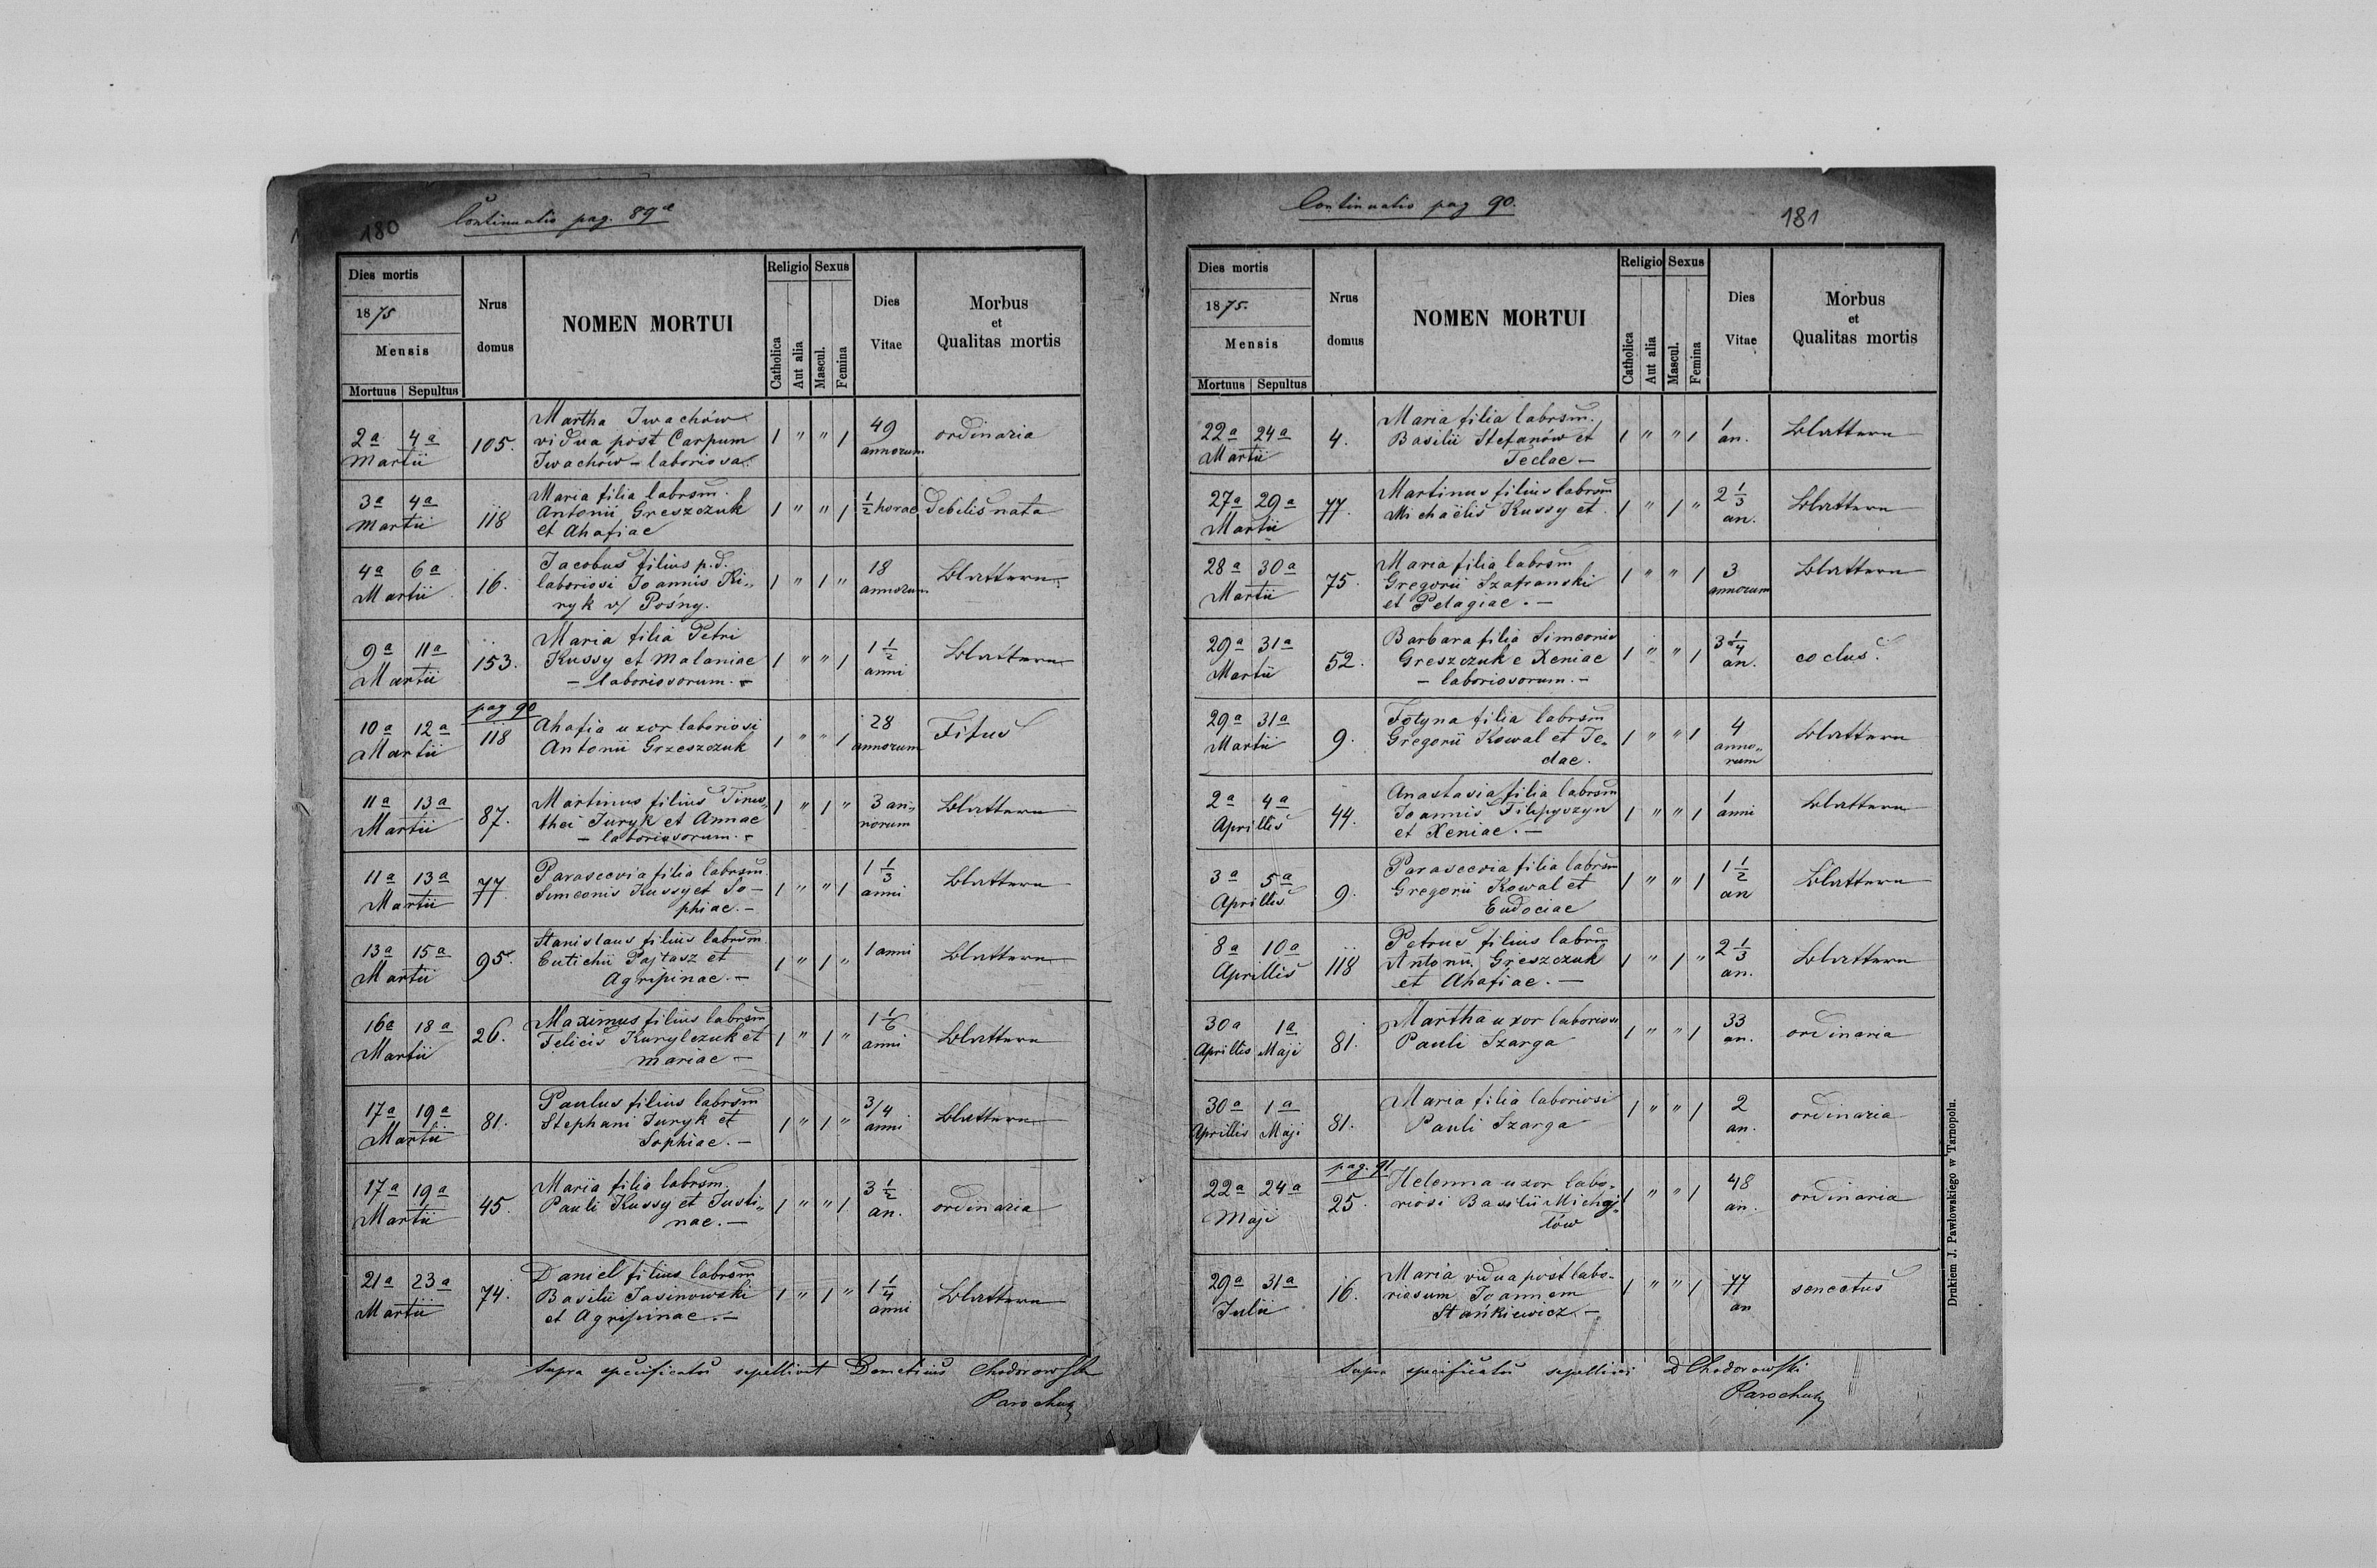 180
Continuatio pag. 89a
Dies mortis
1875
Mensis
Mortuus | Sepultus
Nrus domus
NOMEN MORTUI
Religio
Catholica
Aut alia
Sexus
Mascul.
Femina
Dies Vitae
Morbus
et
Qualitas mortis
2a 4a Martii 105. Martha Iwachów 1 " " 1 49 annorum ordinaria
vidua post Carpum
Iwachów – laboriosa.
3a 4a Martii 118 Maria filia labrsm. 1 " " 1 1/2 horae debilis nata
Antonii Greszczuk
et Ahafiae
4a 6a Martii 16. Jacobus filius p.d. 1 " 1 " 18 annorum Blattern
laboriosi Joannis Ki„
ryk v/ Pośny.
9a 11a Martii 153. Maria filia Petri 1 " " 1 1 1/2 anni Blattern
Kussy et Malaniae
– laboriosorum. –
pag 90
10a 12a Martii 118 Ahafia uxor laboriosi 1 " " 1 28 annorum Fitus
Antonii Grzeszczuk
11a 13a Martii 87. Martinus filius Timo„ 1 " 1 " 3 an„norum Blattern
thei Juryk et Annae
– laboriosorum. –
11a 13a Martii 77 Parascevia filia labrsm. 1 " " 1 1 1/3 anni Blattern
Simeonis Kussy et So–
phiae. –
13a 15a Martii 95. Stanislaus filius labrsm. 1 " 1 " 1 anni Blattern
Eutichii Pajtasz et
Agripinae. –
16a 18a Martii 26. Maximus filius labrsm 1 " 1 " 1 1/6 anni Blattern
Felicis Kurylczuk et
Mariae –
17a 19a Martii 81. Paulus filius labrsm 1 " 1 " 3/4 anni Blattern
Stephani Juryk et
Sophiae. –
17a 19a Martii 45. Maria filia labrsm. 1 " " 1 3 1/2 an. ordinaria
Pauli Kussy et Justi„
nae. –
21a 23a Martii 74. Daniel filius labrsm 1 " 1 " 1 1/4 anni Blattern
Basilii Jasinowski
et Agripinae. –
Supra specificatos sepellivit Demetrius Chodorowski
Parochus
Continuatio pag 90.
181
Dies mortis
1875.
Mensis
Mortuus | Sepultus
Nrus domus
NOMEN MORTUI
Religio
Catholica
Aut alia
Sexus
Mascul.
Femina
Dies Vitae
Morbus
et
Qualitas mortis
22a 24a Martii 4. Maria filia labrsm. 1 " " 1 1 an. Blattern
Basilii Stefanów et
Teclae –
27a 29a Martii 77. Martinus filius labrsm 1 " 1 " 2 1/3 an. Blattern
Michaëlis Kussy et
28a 30a Martii 75. Maria filia labrsm 1 " " 1 3 annorum Blattern
Gregorii Szafranski
et Pelagiae. –
29a 31a Martii 52. Barbara filia Simeonis 1 " " 1 3 1/4 an. coclus.
Greszczuk e Xeniae
– laboriosorum. –
29a 31a Martii 9. Fotyna filia labrsm 1 " " 1 4 anno„rum Blattern
Gregorii Kowal et Te„
clae.
2a 4a Aprillis 44. Anastasia filia labrsm 1 " " 1 1 anni Blattern
Joannis Filipyszyn
et Xeniae. –
3a 5a Aprillis 9. Parascevia filia labrsm 1 " " 1 1 1/2 an Blattern
Gregorii Kowal et
Eudociae
8a 10a Aprillis 118 Petrus filius labrsm 1 " 1 " 2 1/3 an. Blattern
Antonii Greszczuk
et Ahafiae. –
30a Aprillis 1a Maji 81. Martha uxor laboriosi 1 " " 1 33 an. ordinaria
Pauli Szarga
30a Aprillis 1a Maji 81. Maria filia laboriosi 1 " " 1 2 an. ordinaria
Pauli Szarga
pag. 91
22a 24a Maji 25. Helenna uxor labo„ 1 " " 1 48 an. ordinaria
riosi Basilii Michaj„
łów
29a 31a Julii 16. Maria vidua post labo„ 1 " " 1 77 an senectus
riosum Joannem
Stańkiewicz –
Supra specificatos sepellivi DChodorowski
Parochus
Drukiem J. Pawłowskiego w Tarnopolu.